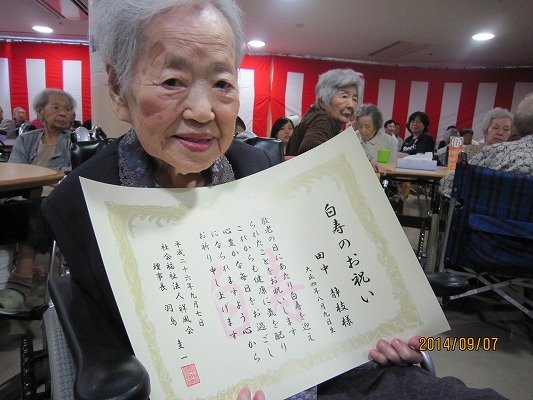 白寿のお祝い
田中 静枝様
大正四年八月
敬老の日にあたり白寿を迎え
られたことをお祝い致します
これからも健康に気を配り
心豊かな毎日をお過ごし
になられますよう心から
お祈り申し上げます
平成二十六年九月七日
社会福祉法人祥風会
理事長 羽鳥 圭一
2014/09/07